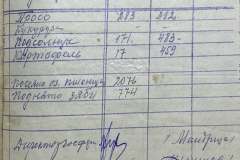 Просо 283. 212
Кукуруза
Подсолнух 171. 483-
Картофель 17 459
Посеяно оз. пшеницы 2076
Поднято зяби 774
Директор совхоза /Мандрица